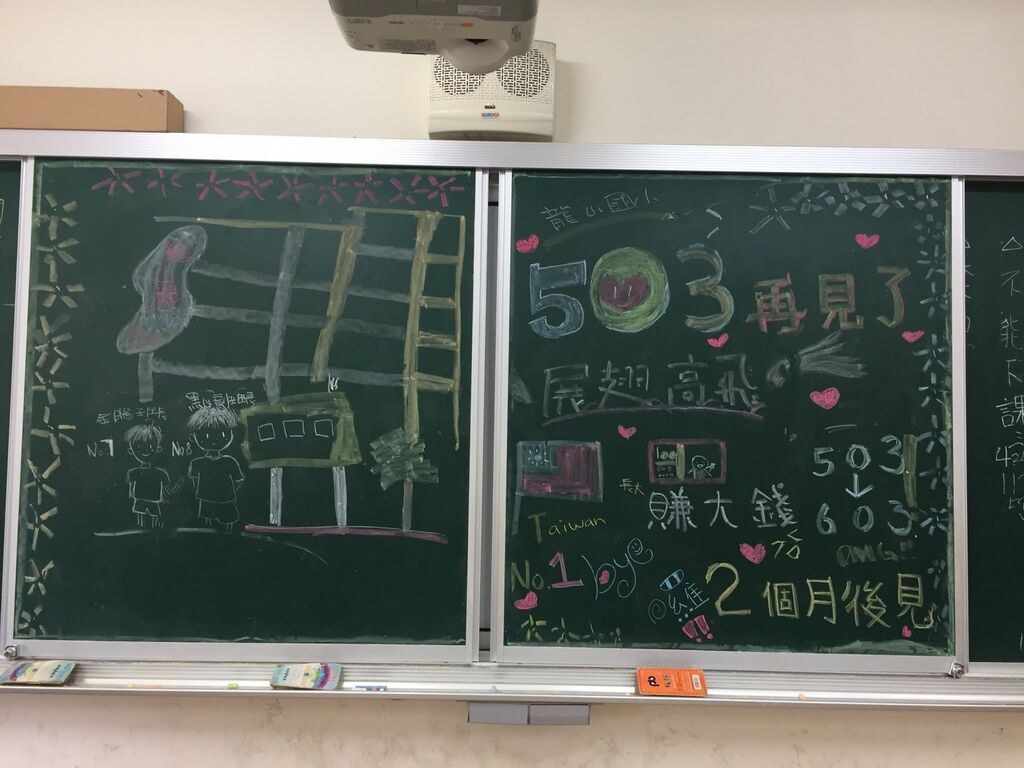 No.7
No.8
龍山國小
503再見了
展翅高飛
100
長大
賺大錢
503
603
Taiwan
No.1 bye
OMG
2個月後見
不
能
課